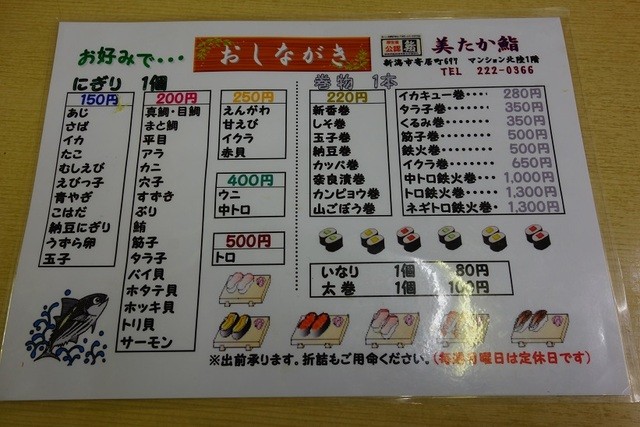 お好みで・・・
おしながき
公認
美たか鮨
新潟市寄居町697 マンション北陸1階
TEL 222-0366
にぎり 1個
150円
あじ
さば
イカ
たこ
むしえび
えびっ子
青やぎ
こはだ
納豆にぎり
うずら卵
玉子
200円
真鯛・目鯛
まと鯛
平目
アラ
カニ
穴子
すずき
ぶり
鮪
筋子
タラ子
バイ貝
ホタテ貝
ホッキ貝
トリ貝
サーモン
250円
えんがわ
甘えび
イクラ
赤貝
400円
ウニ
中トロ
500円
トロ
巻物 1本
220円
新香巻
しそ巻
玉子巻
納豆巻
カッパ巻
奈良漬巻
カンピョウ巻
山ごぼう巻
イカキュー巻・・・・ 280円
タラ子巻・・・・・・・ 350円
くるみ巻・・・・・・・ 350円
筋子巻・・・・・・・・ 500円
鉄火巻・・・・・・・・ 500円
イクラ巻・・・・・・・ 650円
中トロ鉄火巻・・・ 1,000円
トロ鉄火巻・・・・・ 1,300円
ネギトロ鉄火巻・ 1,300円
いなり 1個 80円
太巻 1個 100円
※出前承ります。折詰もご用命ください。(毎週月曜日は定休日です)